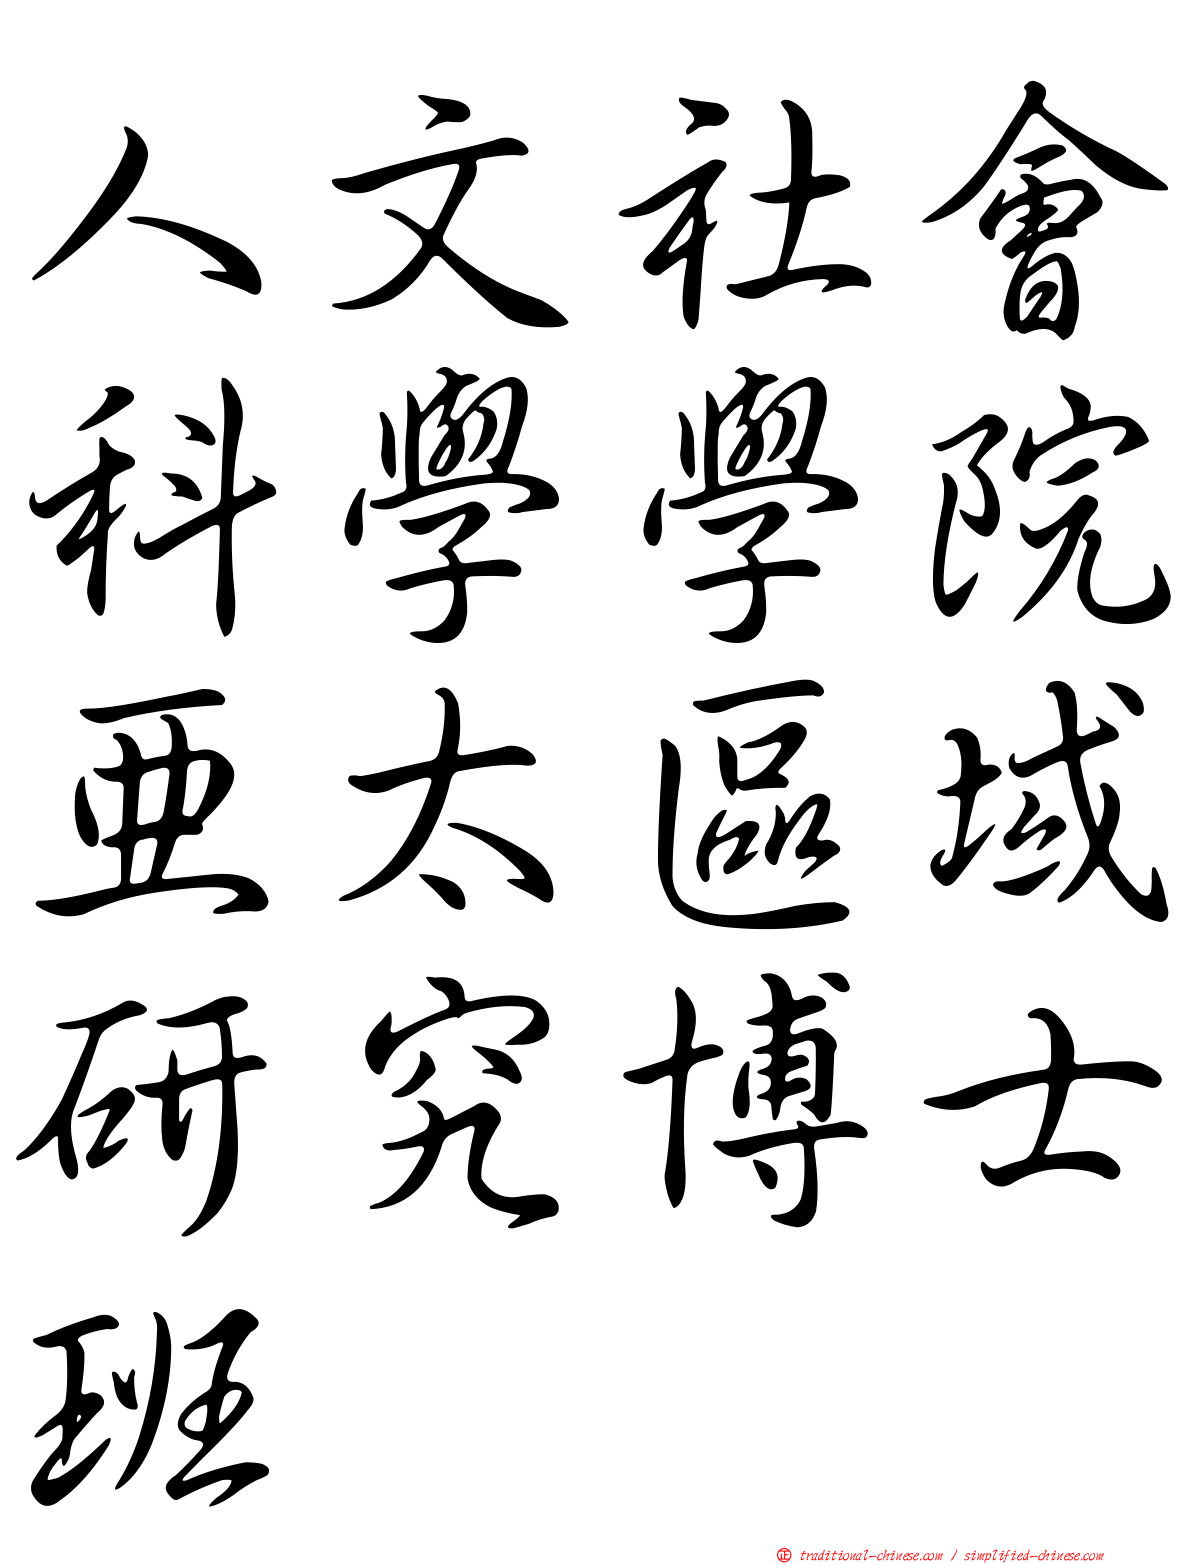 人文社會
科學學院
亞太區域
研究博士
班
正 traditional-chinese.com / simplified-chinese.com